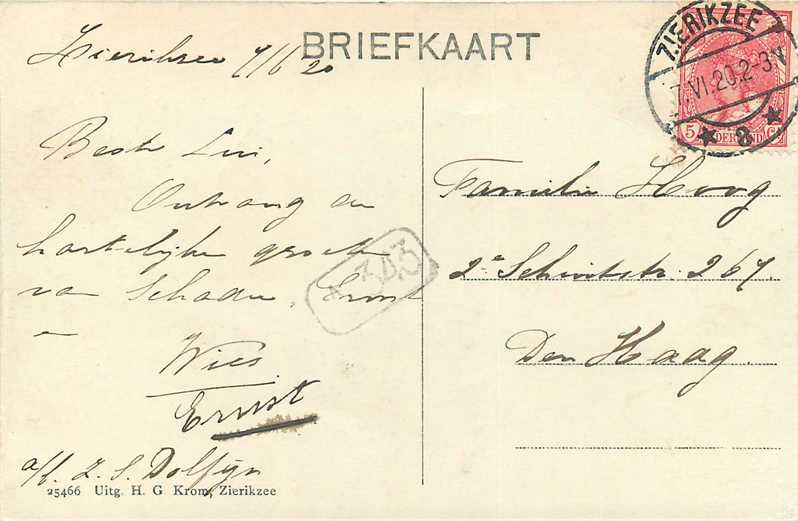 BRIEFKAART
Zieriksee 7/6 20
Beste Lui,
Ontvang de
hartelijke groeten
van Schaden, Ernst
en
Wies
Ernst
a/b. Z. S. Dolfijn
25466 Uitg. H. G. Krom, Zierikzee
343
ZIERIKZEE
7.VI.20.2-3V
8
5 NEDERLAND Ct
Familie Hoog
2e Schuitstr. 267.
Den Haag.